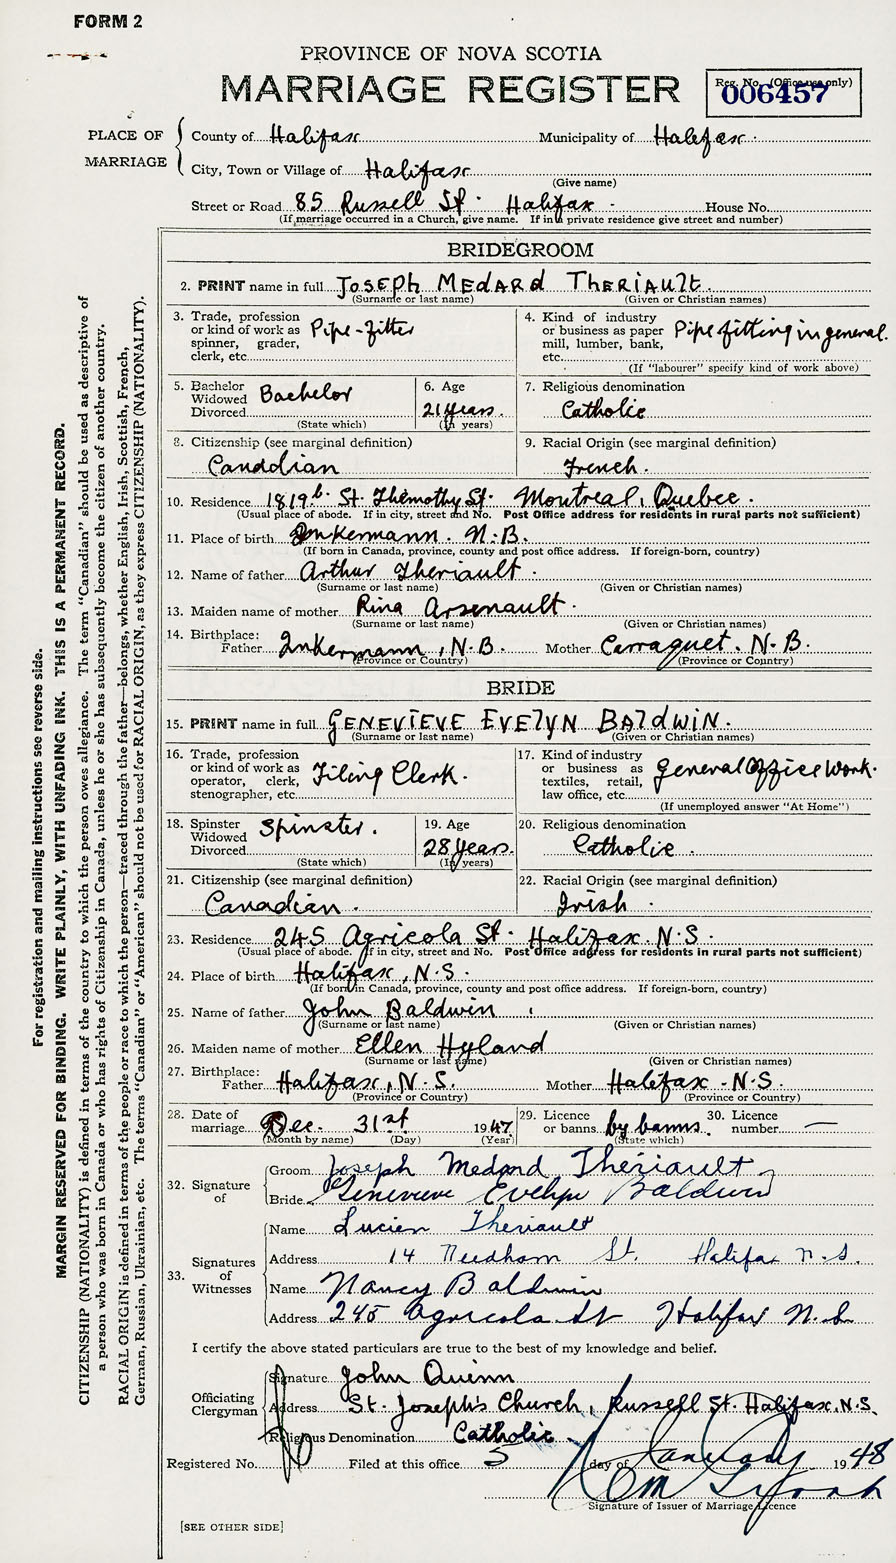 FORM 2
PROVINCE OF NOVA SCOTIA
MARRIAGE REGISTER
Reg. No. (Office use only)
006457
PLACE OF MARRIAGE
County of Halifax Municipality of Halifax
City, Town or Village of Halifax
(Give name)
Street or Road 85 Russell St. Halifax House No.
(If marriage occurred in a Church, give name. If in a private residence give street and number)
BRIDEGROOM
2. PRINT name in full JOSEPH MEDARD THERIAULT.
(Surname or last name) (Given or Christian names)
3. Trade, profession or kind of work as spinner, grader, clerk, etc. Pipe-fitter
4. Kind of industry or business as paper mill, lumber, bank, etc. Pipe fitting in general.
(If "labourer" specify kind of work above)
5. Bachelor Widowed Divorced Bachelor
(State which)
6. Age 21 years.
(In years)
7. Religious denomination Catholic
8. Citizenship (see marginal definition) Canadian
9. Racial Origin (see marginal definition) French.
10. Residence 1819b St. Thimothy St. Montreal, Quebec.
(Usual place of abode. If in city, street and No. Post Office address for residents in rural parts not sufficient)
11. Place of birth Inkermann. N.B.
(If born in Canada, province, county and post office address. If foreign-born, country)
12. Name of father Arthur Theriault.
(Surname or last name) (Given or Christian names)
13. Maiden name of mother Rina Arsenault.
(Surname or last name) (Given or Christian names)
14. Birthplace: Father Inkermann, N.B. Mother Carraquet. N.B.
(Province or Country) (Province or Country)
BRIDE
15. PRINT name in full GENEVIEVE EVELYN BALDWIN.
(Surname or last name) (Given or Christian names)
16. Trade, profession or kind of work as operator, clerk, stenographer, etc. Filing Clerk.
17. Kind of industry or business as textiles, retail, law office, etc. General Office Work.
(If unemployed answer "At Home")
18. Spinster Widowed Divorced Spinster.
(State which)
19. Age 28 years.
(In years)
20. Religious denomination Catholic.
21. Citizenship (see marginal definition) Canadian.
22. Racial Origin (see marginal definition) Irish.
23. Residence 245 Agricola St. Halifax. N.S.
(Usual place of abode. If in city, street and No. Post Office address for residents in rural parts not sufficient)
24. Place of birth Halifax, N.S.
(If born in Canada, province, county and post office address. If foreign-born, country)
25. Name of father John Baldwin
(Surname or last name) (Given or Christian names)
26. Maiden name of mother Ellen Hyland
(Surname or last name) (Given or Christian names)
27. Birthplace: Father Halifax, N.S. Mother Halifax - N.S.
(Province or Country) (Province or Country)
28. Date of marriage Dec. 31st 1947
(Month by name) (Day) (Year)
29. Licence or banns by banns.
(State which)
30. Licence number —
32. Signature of
Groom Joseph Medard Thériault
Bride Genevieve Evelyn Baldwin
33. Signatures of Witnesses
Name Lucien Theriault
Address 14 Needham St. Halifax N.S.
Name Nancy Baldwin
Address 245 Agricola St Halifax N.S.
I certify the above stated particulars are true to the best of my knowledge and belief.
Officiating Clergyman
Signature John Quinn
Address St. Joseph's Church, Russell St. Halifax. N.S.
Religious Denomination Catholic.
Registered No. Filed at this office 5 day of January 1948
Signature of Issuer of Marriage Licence
[SEE OTHER SIDE]
For registration and mailing instructions see reverse side.
MARGIN RESERVED FOR BINDING. WRITE PLAINLY, WITH UNFADING INK. THIS IS A PERMANENT RECORD.
CITIZENSHIP (NATIONALITY) is defined in terms of the country to which the person owes allegiance. The term "Canadian" should be used as descriptive of
a person who was born in Canada or who has rights of Citizenship in Canada, unless he or she has subsequently become the citizen of another country.
RACIAL ORIGIN is defined in terms of the people or race to which the person—traced through the father—belongs, whether English, Irish, Scottish, French,
German, Russian, Ukrainian, etc. The terms "Canadian" or "American" should not be used for RACIAL ORIGIN, as they express CITIZENSHIP (NATIONALITY).